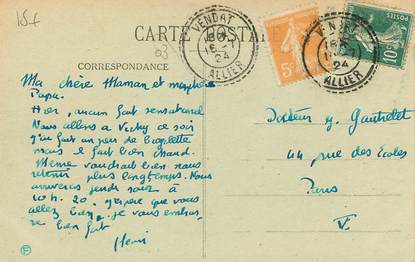 15f
CARTE POSTALE
03
CORRESPONDANCE
VENDAT
16-7
24
ALLIER
5c
VENDAT
16-7
24
ALLIER
10c
Ma chère Maman et mon cher
Papa.
Hier, aucun fait sensationnel
Nous allons à Vichy ce soir
J'ai fait un peu de bicyclette
mais il fait bien chaud.
Mémé voudrait bien nous
retenir plus longtemps. Nous
arriverons jeudi soir à
10 h. 20. J'espère que vous
allez bien, je vous embras
se bien fort
Henri
Docteur y. Gautrelet
44 rue des Ecoles
Paris
V.